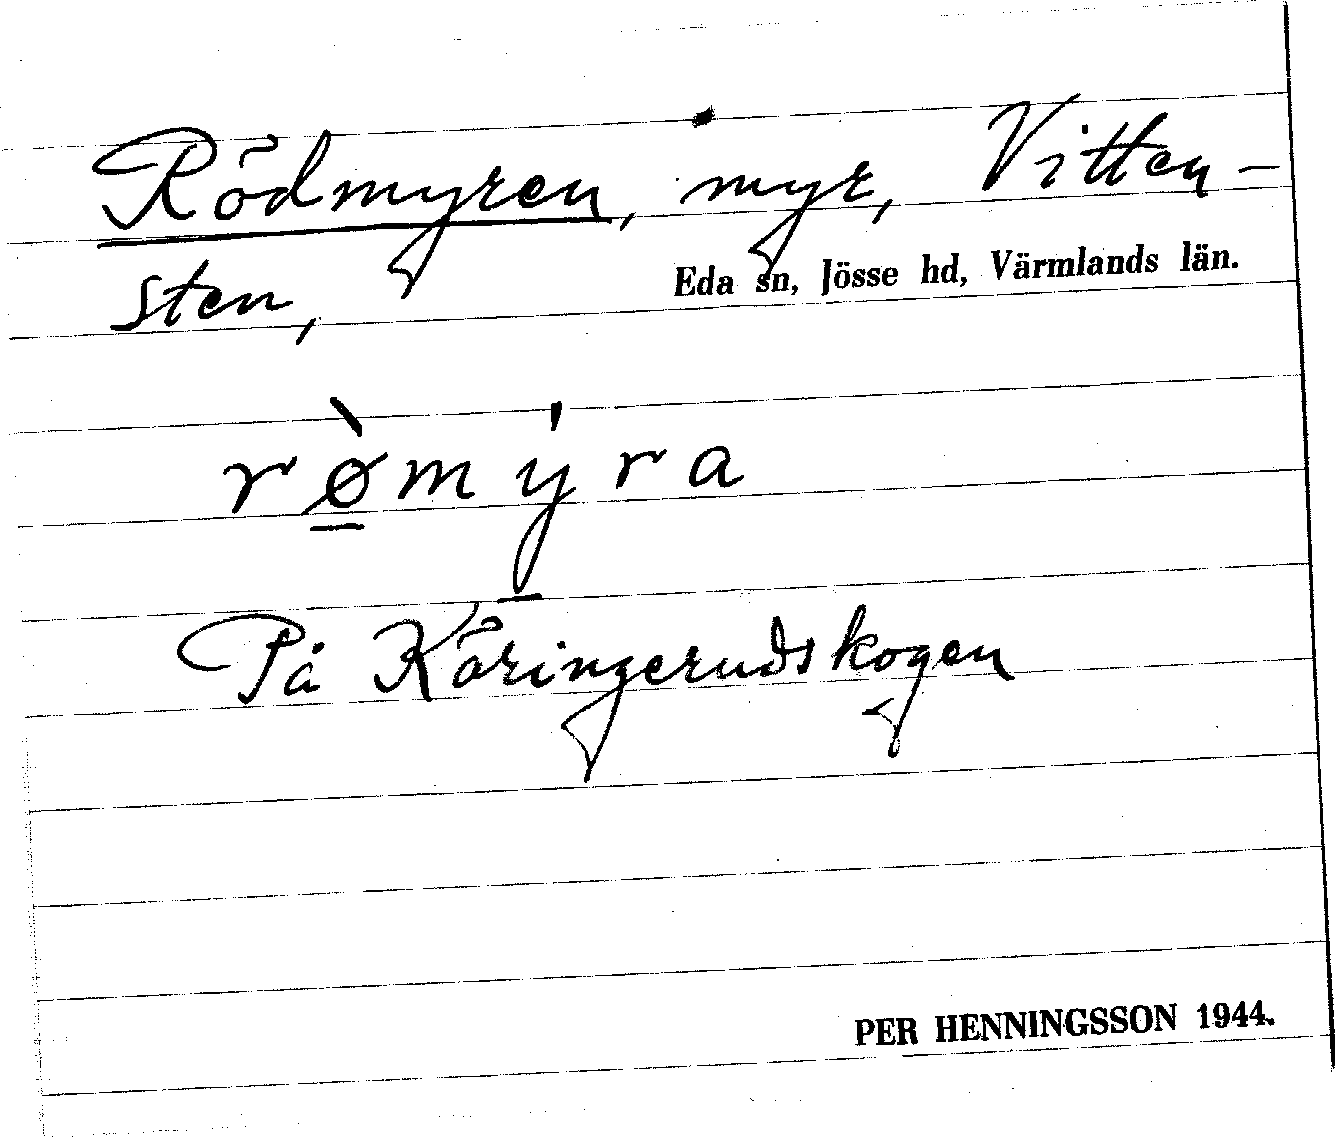 Rödmyren, myr, Vitten-
sten,
Eda sn, Jösse hd, Värmlands län.
rø̲̀mý̲ra
På Käringerudskogen
PER HENNINGSSON 1944.